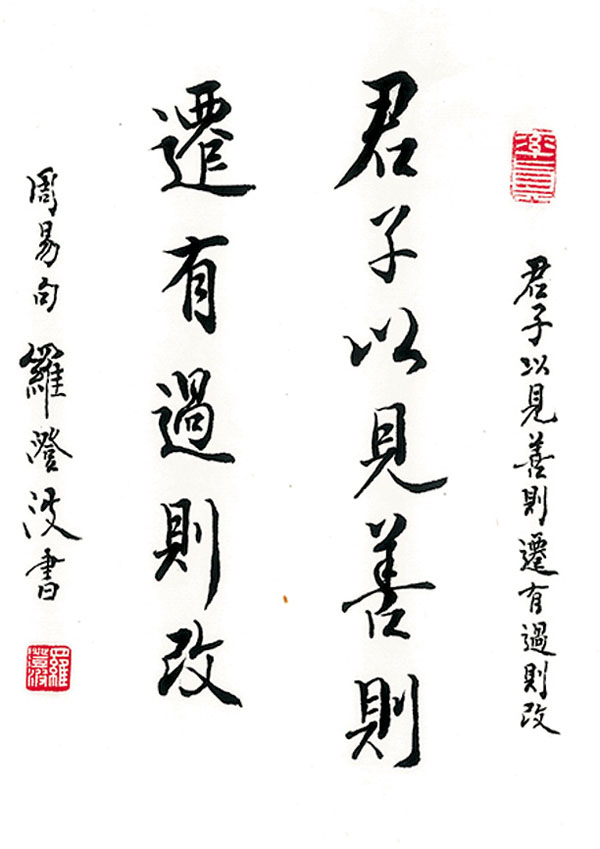 君子以見善則遷有過則改
君子以見善則
遷有過則改
周易句 羅澄波書
羅澄波